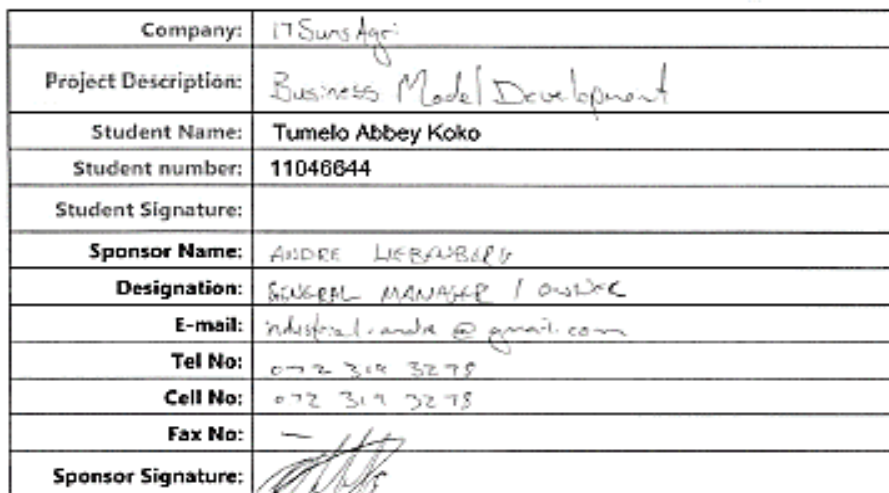 Company: 17 Suns Agri
Project Description: Business Model Development
Student Name: Tumelo Abbey Koko
Student number: 11046644
Student Signature:
Sponsor Name: ANDRE LIEBENBERG
Designation: GENERAL MANAGER / OWNER
E-mail: industrial.andre @ gmail.com
Tel No: 072 319 3278
Cell No: 072 319 3278
Fax No: —
Sponsor Signature: